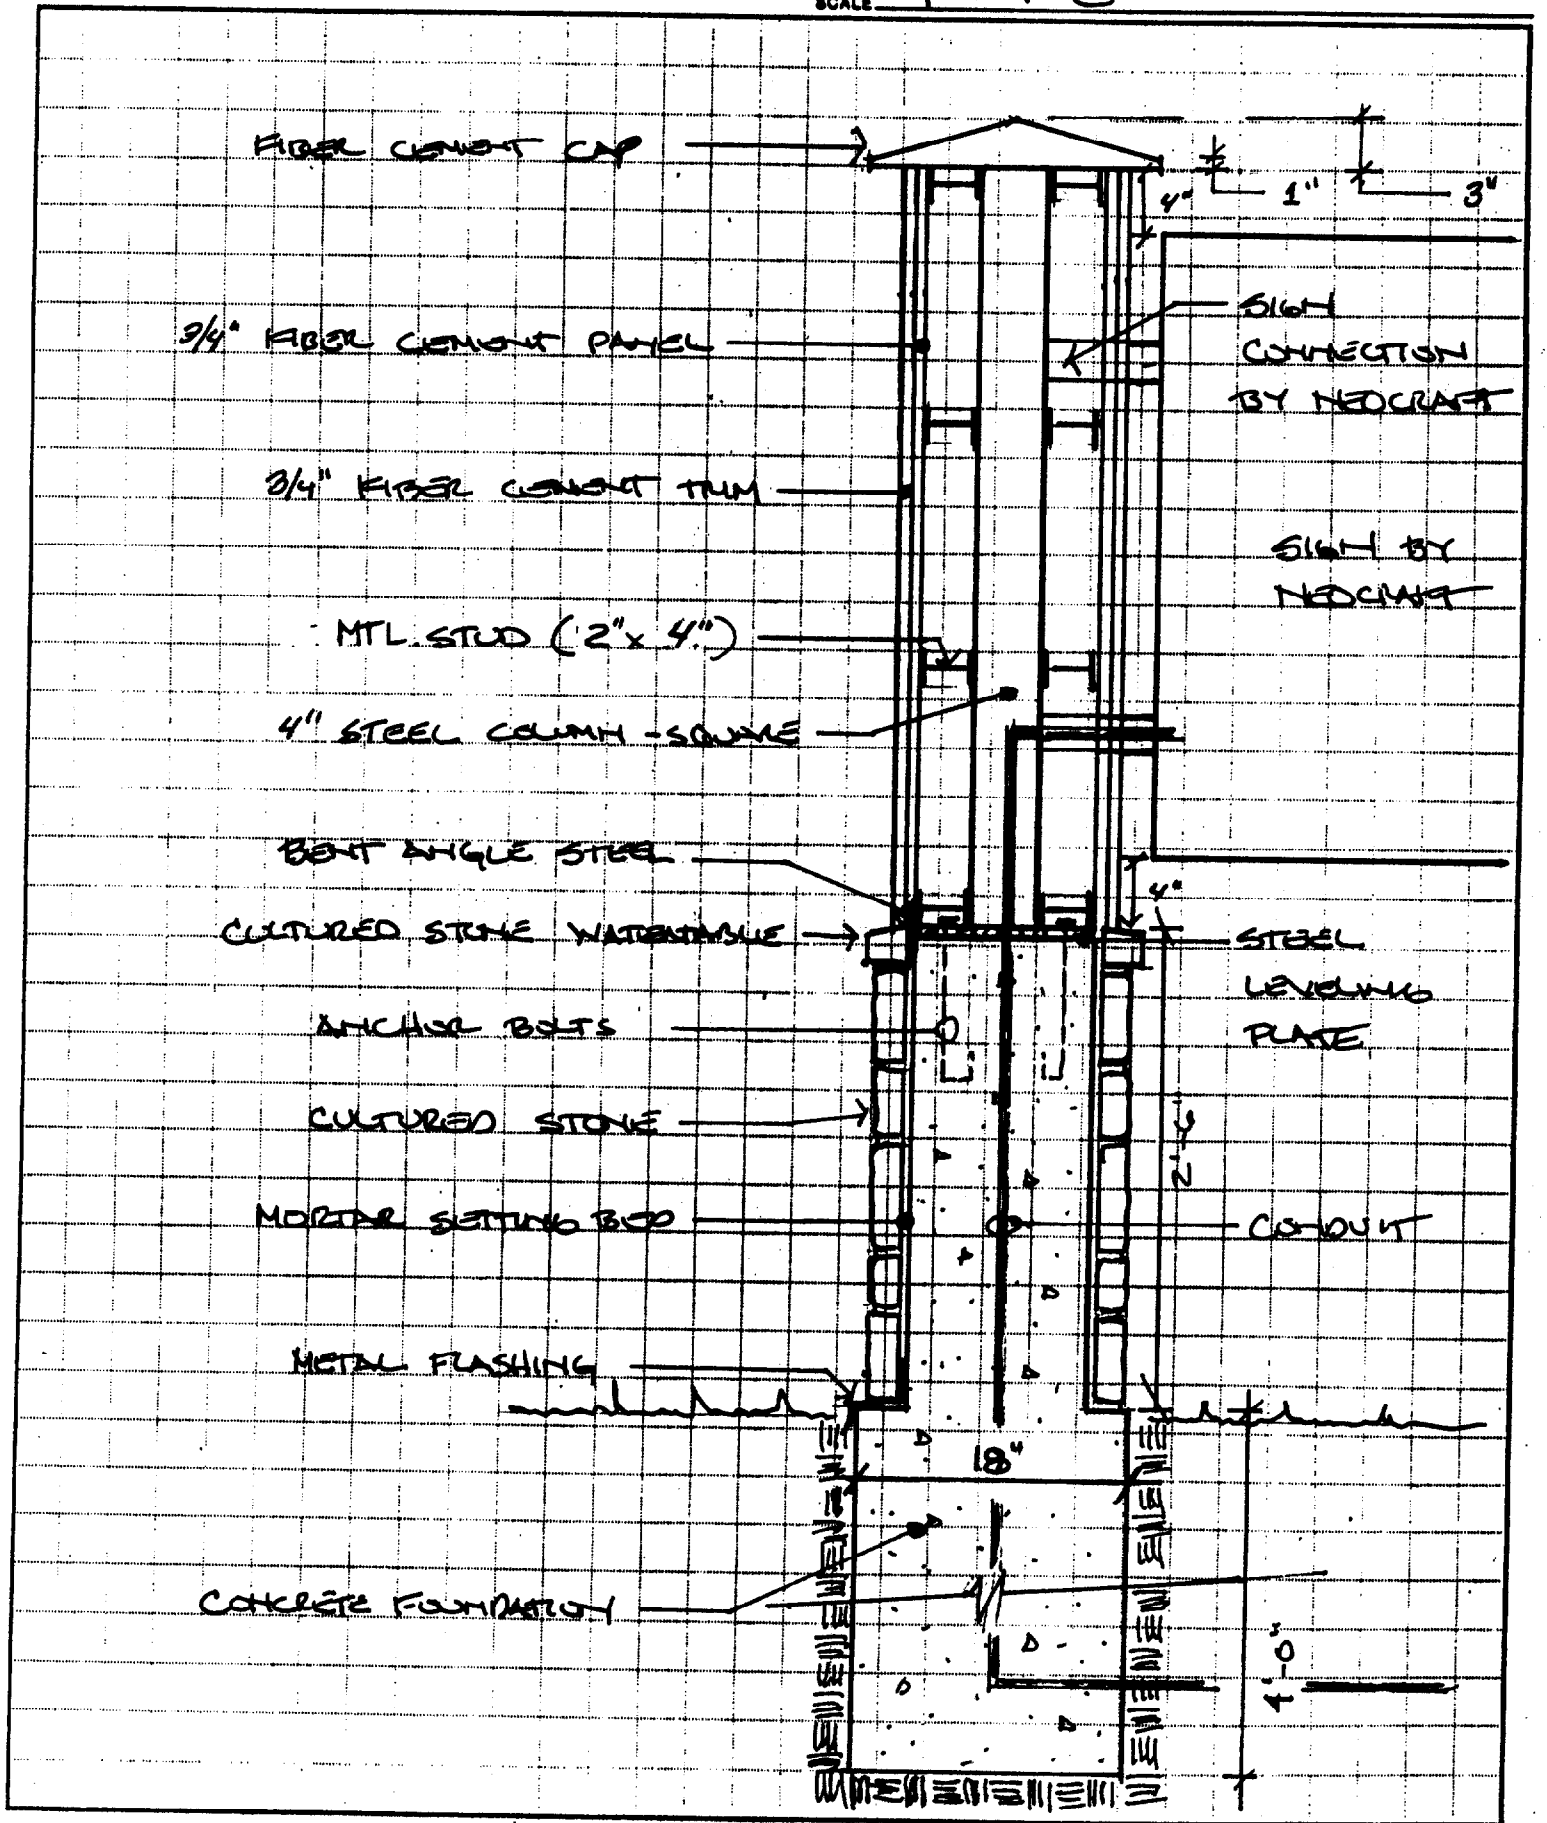 SCALE
FIBER CEMENT CAP
4"
1"
3"
3/4" FIBER CEMENT PANEL
SIGN
CONNECTION
BY NEOCRAFT
3/4" FIBER CEMENT TRIM
SIGN BY
NEOCRAFT
MTL. STUD (2" x 4")
4" STEEL COLUMN - SQUARE
BENT ANGLE STEEL
4"
CULTURED STONE WATERTABLE
STEEL
LEVELING
PLATE
ANCHOR BOLTS
CULTURED STONE
2'-6"
MORTAR SETTING BED
CONDUIT
METAL FLASHING
18"
CONCRETE FOUNDATION
4'-0"